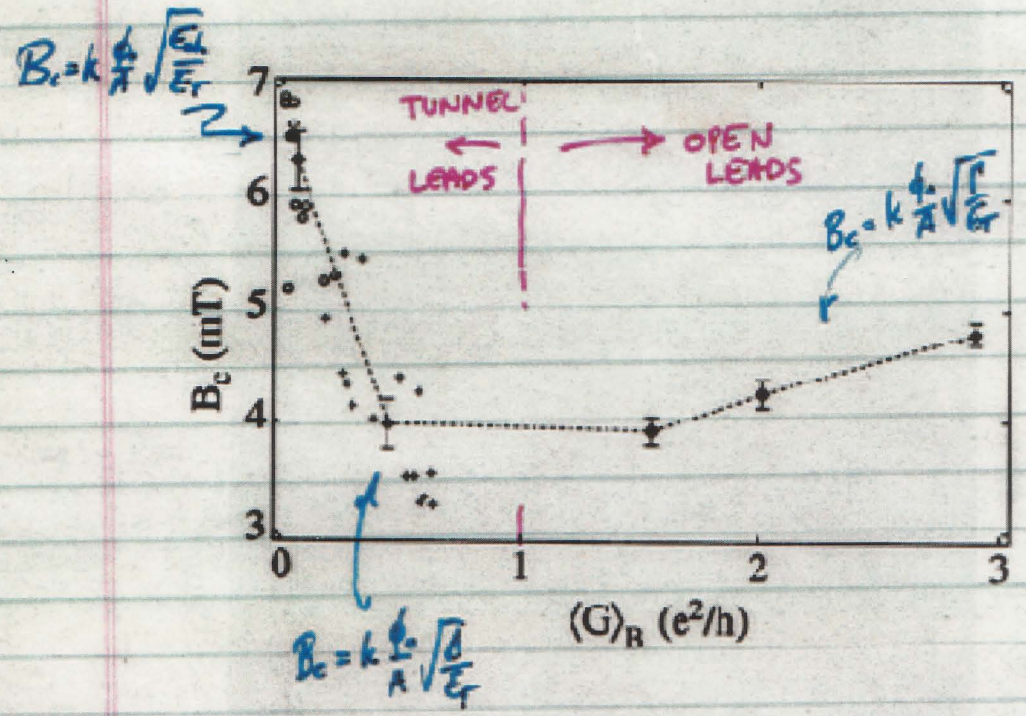 B_c = k φ₀/A √(E_el/E_T)
7
TUNNEL
LEADS
OPEN
LEADS
6
B_c = k φ₀/A √(Γ/E_T)
5
B_c (mT)
4
3
0 1 2 3
⟨G⟩_B (e²/h)
B_c = k φ₀/A √(Δ/E_T)